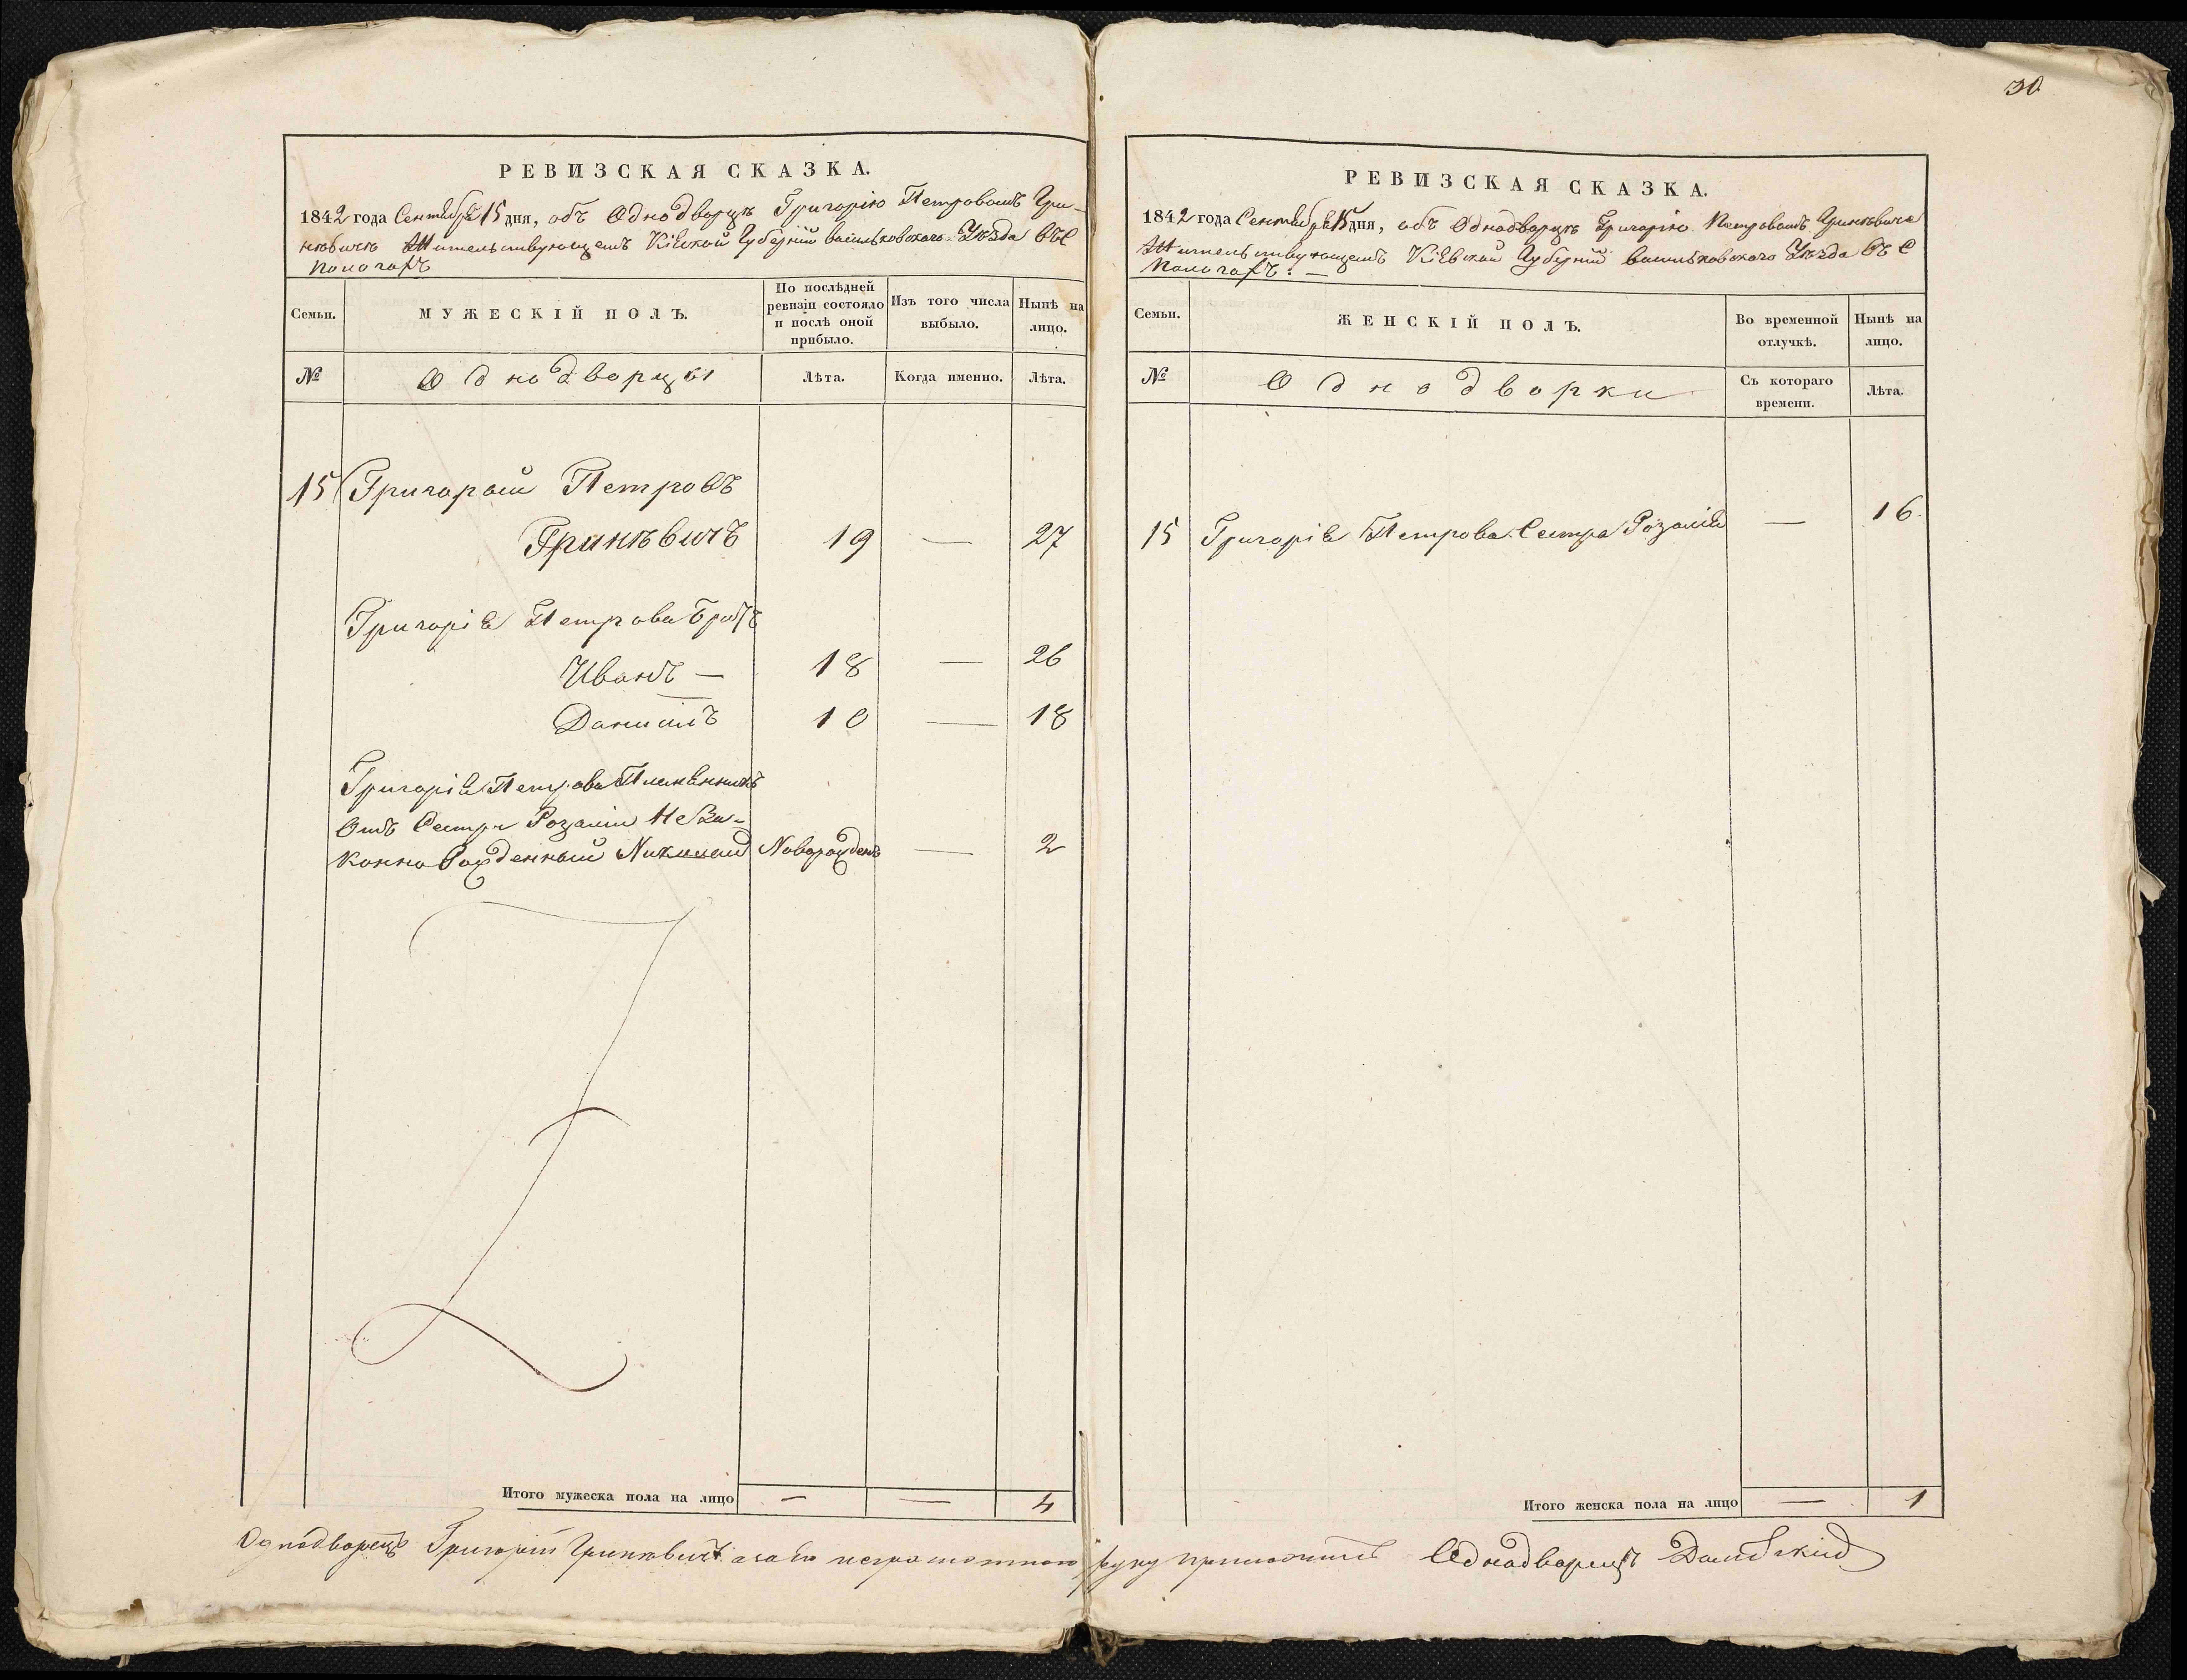 30
РЕВИЗСКАЯ СКАЗКА.
1842 года Сентября 15 дня, объ Однодворцѣ Григорію Петровомъ Гри-
нѣвичѣ Жительствующемъ Кіевской Губерніи Васильковскаго Уѣзда въ С
Семьи.
МУЖЕСКІЙ ПОЛЪ.
По послѣдней ревизіи состояло и послѣ оной прибыло.
Изъ того числа выбыло.
Нынѣ на лицо.
№
Однодворцы
Лѣта.
Когда именно.
Лѣта.
15 Григорій Петровъ
Гринѣвичъ 19 — 27
Григорія Петрова Братъ
Иванъ — 18 — 26
Даниилъ 10 — 18
Григорія Петрова Племенникъ
Отъ Сестры Розаліи Неза-
конно Рожденный Николай Новорожденъ — 2
Итого мужеска пола на лицо — — 4
РЕВИЗСКАЯ СКАЗКА.
1842 года Сентября 15 дня, объ Однодворцѣ Григорію Петровомъ Гринѣвичѣ
Жительствующемъ Кіевской Губерніи Васильковскаго Уѣзда въ С
Семьи.
ЖЕНСКІЙ ПОЛЪ.
Во временной отлучкѣ.
Нынѣ на лицо.
№
Однодворки
Съ котораго времени.
Лѣта.
15 Григорія Петрова Сестра Розалія — 16
Итого женска пола на лицо — 1
Однодворецъ Григорій Гриневичъ а за его неграмотного руку приложилъ Однодворецъ